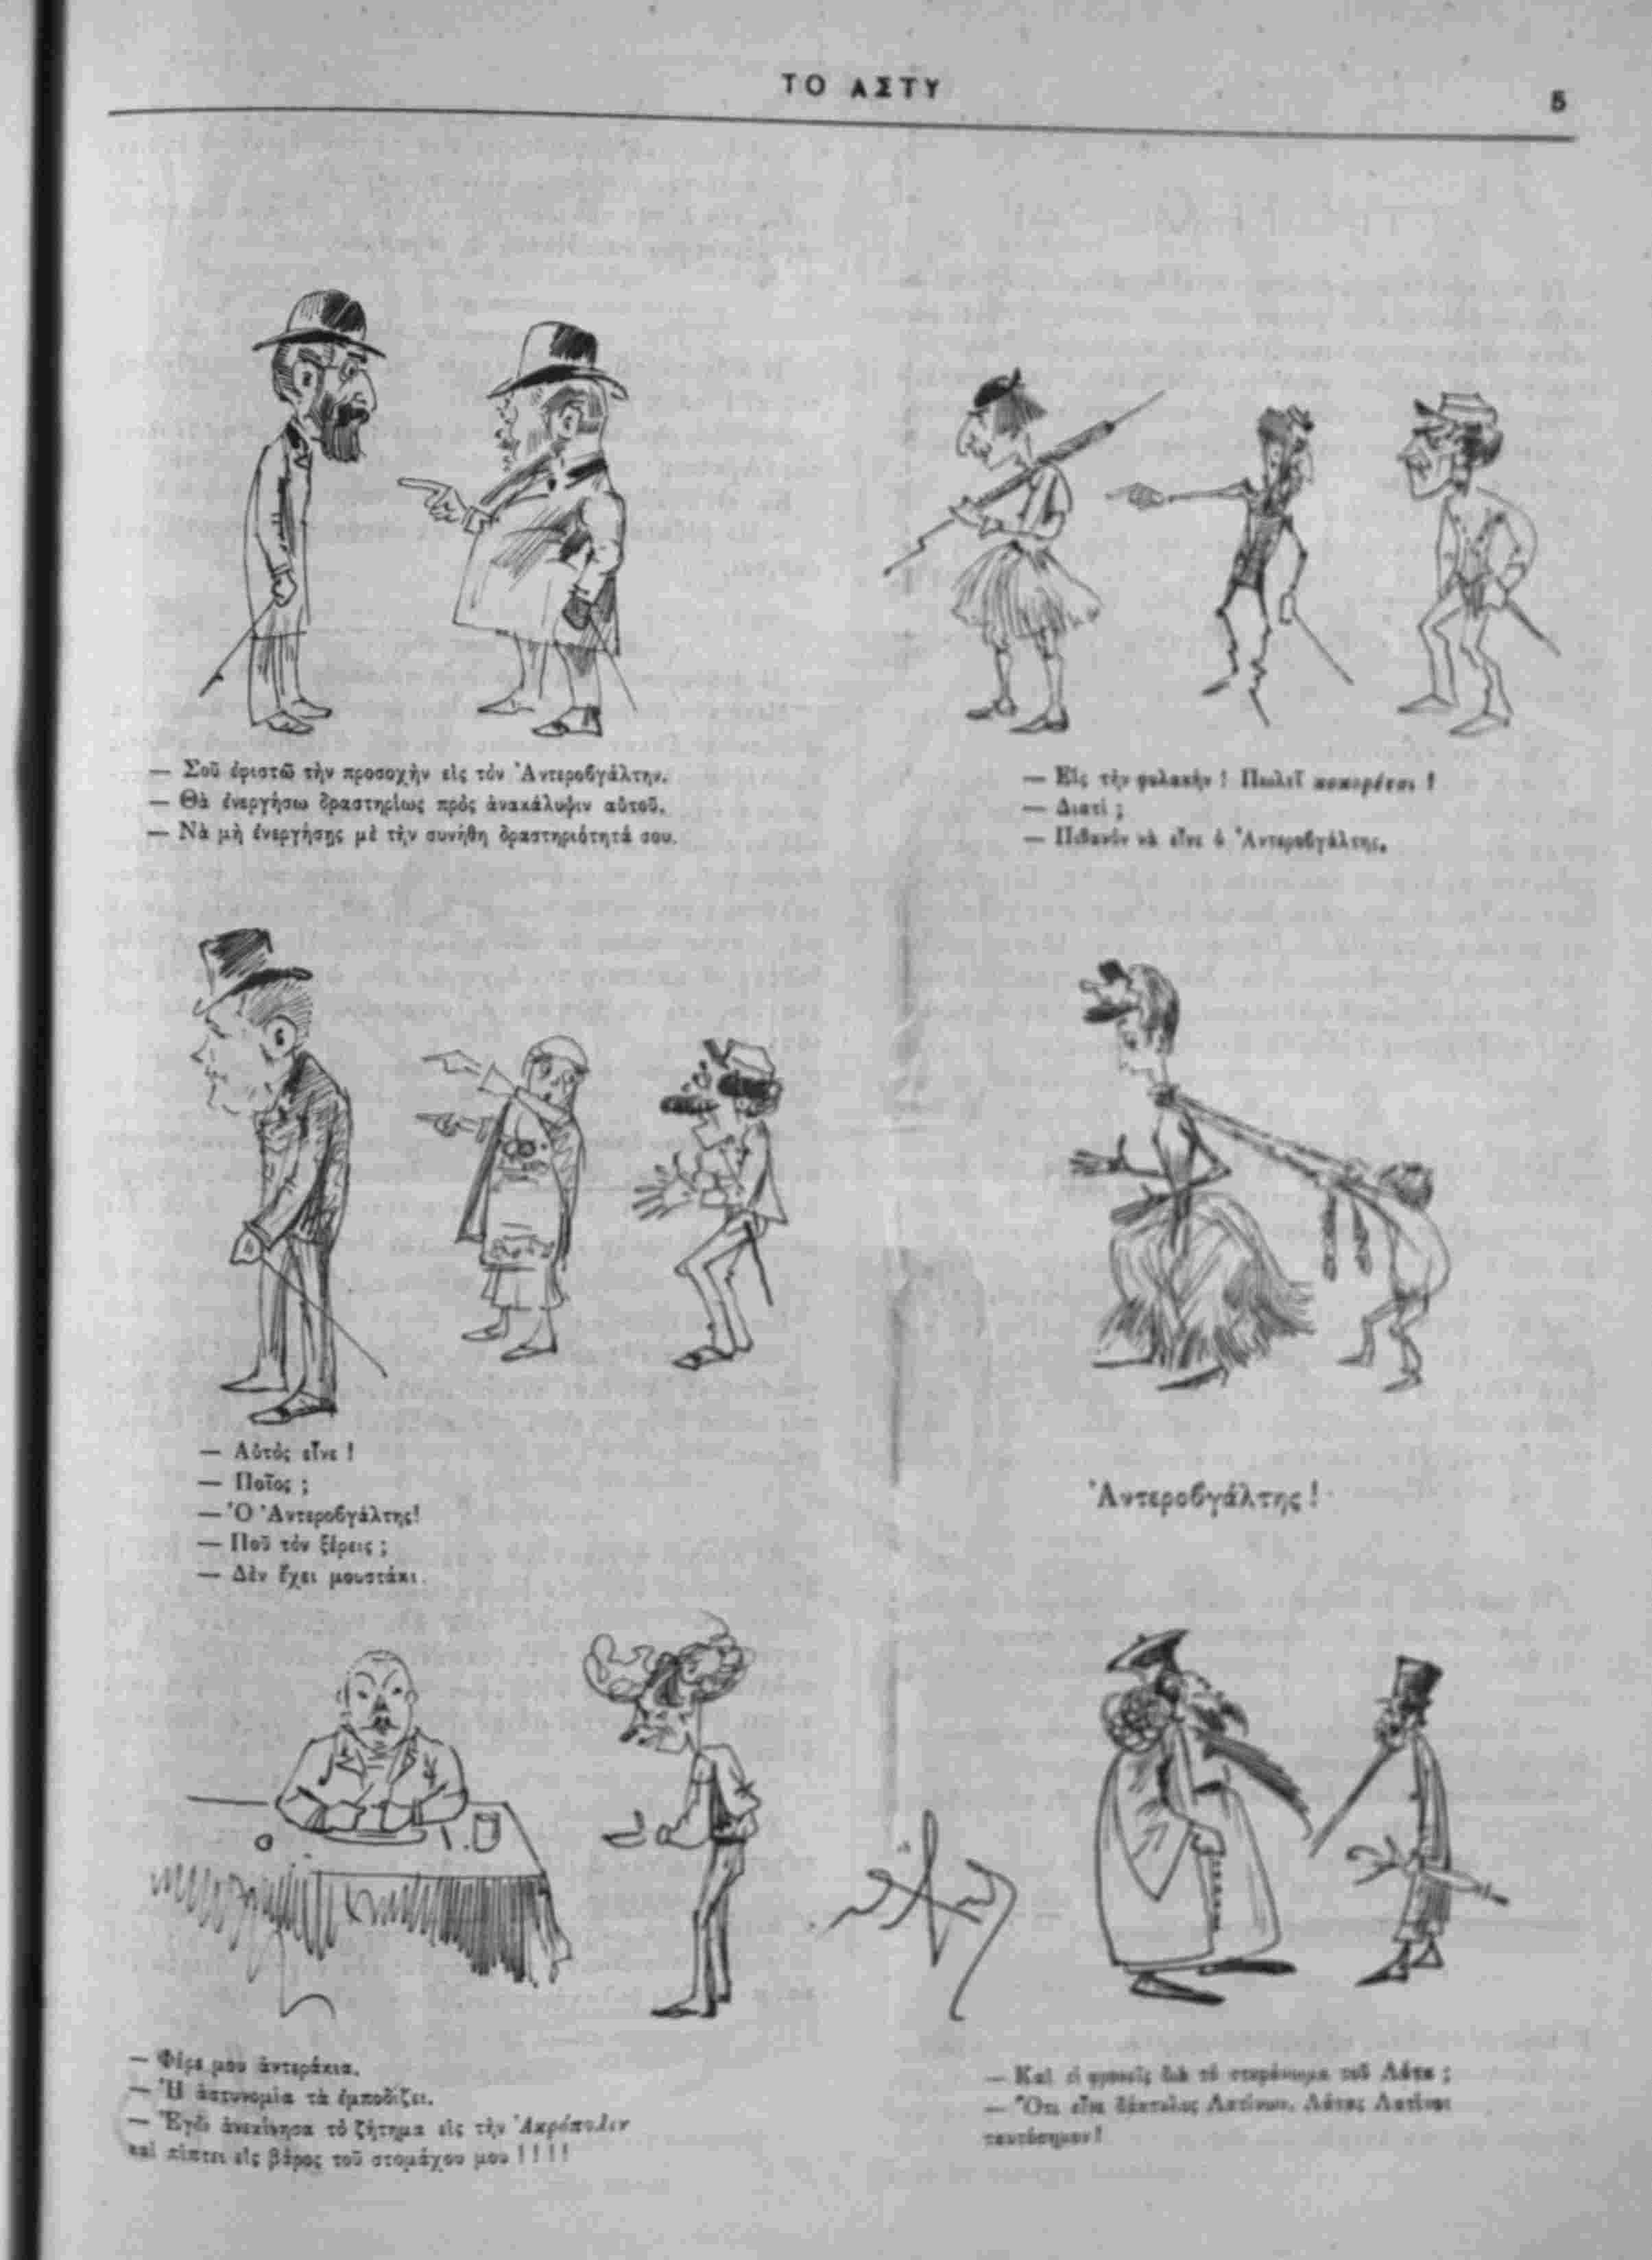 ΤΟ ΑΣΤΥ
5
— Σοῦ ἐφιστῶ τὴν προσοχὴν εἰς τὸν Ἀντεροβγάλτην.
— Θὰ ἐνεργήσω δραστηρίως πρὸς ἀνακάλυψιν αὐτοῦ.
— Νὰ μὴ ἐνεργήσῃς μὲ τὴν συνήθη δραστηριότητά σου.
— Εἰς τὴν φυλακήν ! Πωλεῖ κοκορέτσι !
— Διατί ;
— Πιθανὸν νὰ εἶνε ὁ Ἀντεροβγάλτης.
— Αὐτὸς εἶνε !
— Ποῖος ;
— Ὁ Ἀντεροβγάλτης!
— Ποῦ τὸν ξέρεις ;
— Δὲν ἔχει μουστάκι.
Ἀντεροβγάλτης !
— Φέρε μου ἀντεράκια.
— Ἡ ἀστυνομία τὰ ἐμποδίζει.
— Ἐγὼ ἀνεκίνησα τὸ ζήτημα εἰς τὴν Ἀκρόπολιν
καὶ πίπτει εἰς βάρος τοῦ στομάχου μου ! ! ! !
— Καὶ τί φρονεῖς διὰ τὸ τοῦ Λάτα ;
— Ὅτι εἶνε δάκτυλος Λατίνων. Λάτας Λατῖνοι
ταυτόσημον !